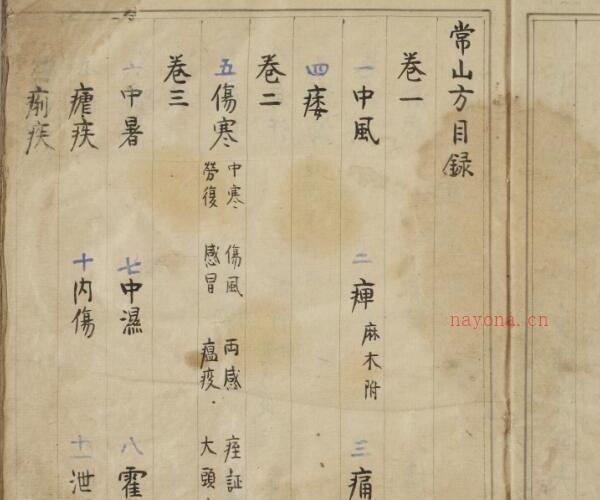 常山方目録
卷一
一中風 二痺 麻木附 三痛
四痿
卷二
五傷寒 中寒 傷風 両感 痓証
勞復 感冒 瘟疫 大頭
卷三
六中暑 七中濕 八霍
瘧疾 十内傷 十一泄
痢疾
nayona.cn